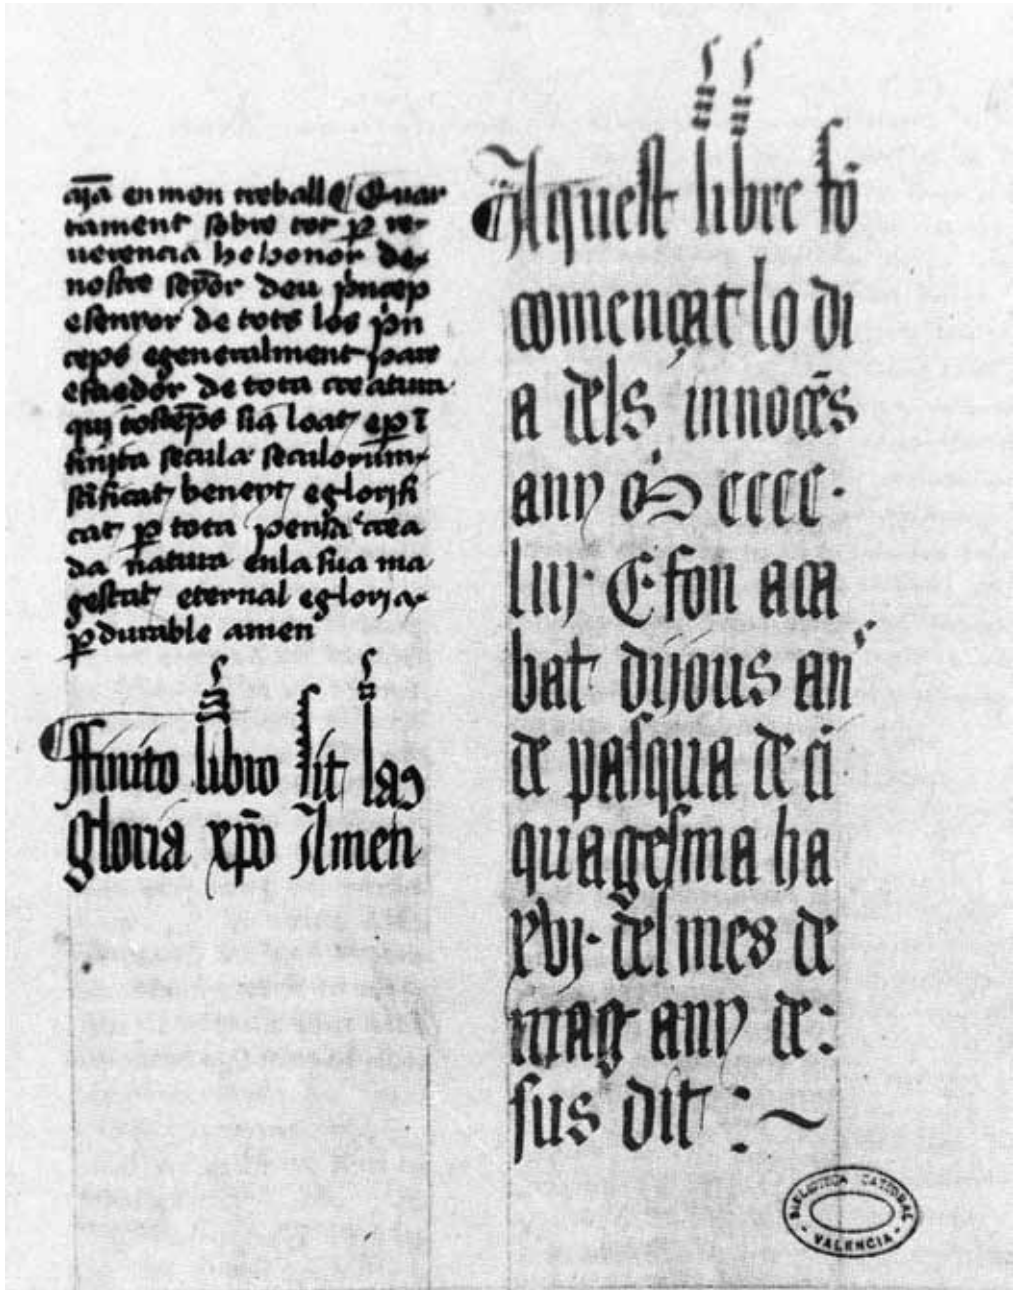 aja en mon treball Quar
tament sobre tot p re
uerencia he honor de
nostre seyor deu princep
e senyor de tots los prin
ceps e generalment pare
e faedor de tota creatura
qui tostēps sia loat e p ī
finita secula seculorum
stificat beneyt e glorifi
cat p tota pensa crea
da natura en la sua ma
gestat eternal e gloria
p durable amen
ffinito libro sit laꝰ
gloria xp̄o Amen
Aquest libre fō
començat lo di
a dels innocēs
any M cccc
liij · E fon aca
bat dijous an
de pasqua de ci
quagesma ha
xvj · del mes de
maig any de:
sus dit :~
BIBLIOTECA CATEDRAL
· VALENCIA ·